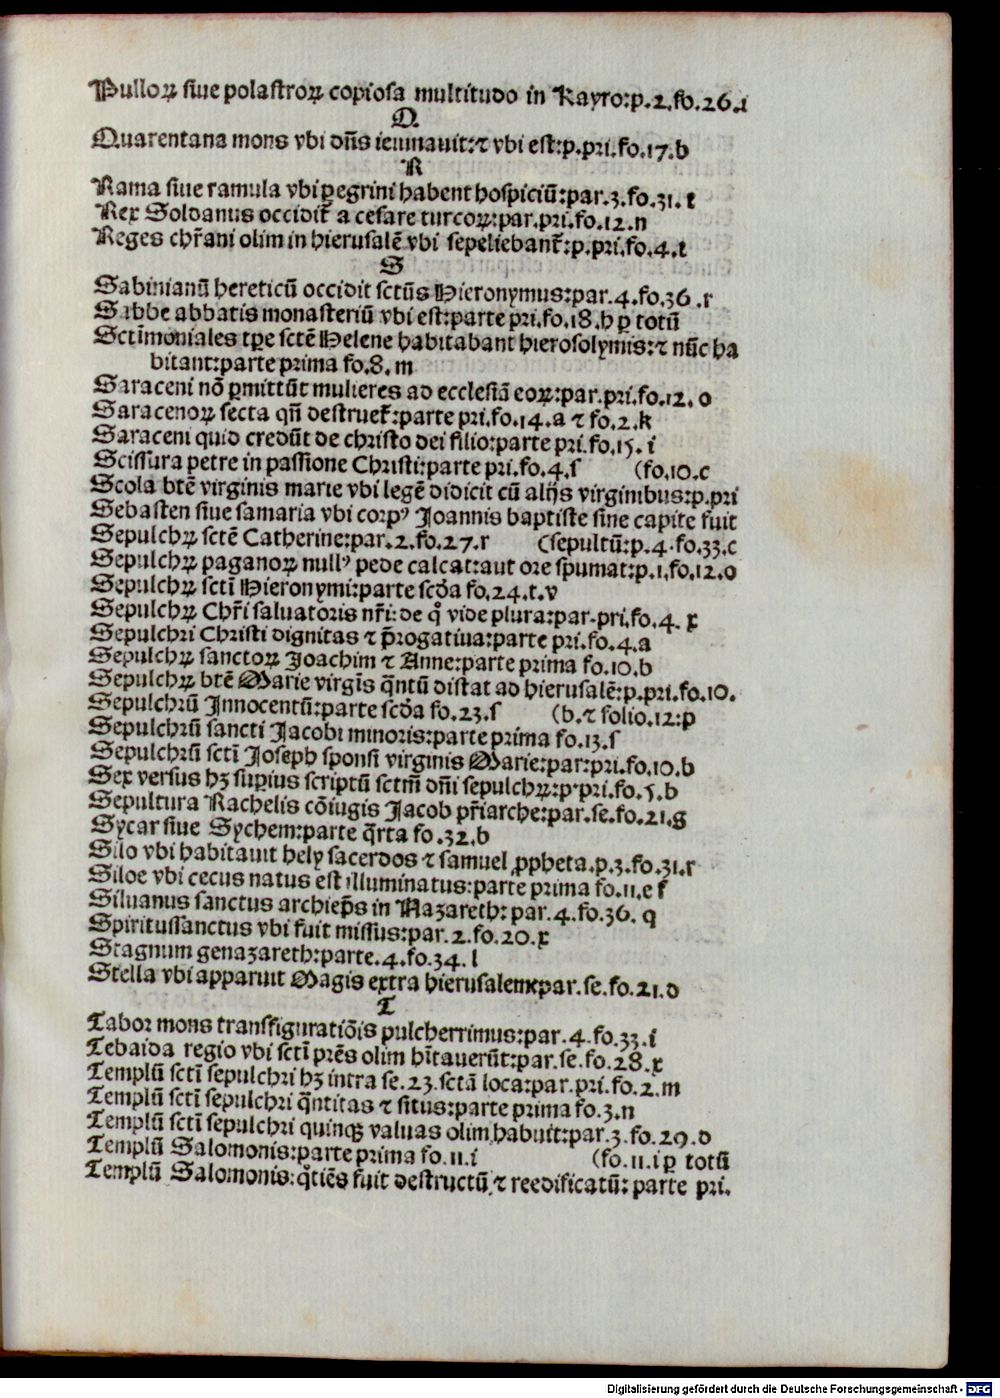 Pulloꝝ siue polastroꝝ copiosa multitudo in Kayro:p.2.fo.26.i
Q
Quarentana mons vbi dñs ieiunauit:⁊ vbi est:p.pri.fo.17.b
R
Rama siue ramula vbi ꝑegrini habent hospiciũ:par.3.fo.31.t
Rex Soldanus occidit᷑ a cesare turcoꝝ:par.pri.fo.12.n
Reges chr̃ani olim in hierusalẽ vbi sepeliebant᷑:p.pri.fo.4.t
S
Sabinianũ hereticũ occidit sctũs Hieronymus:par.4.fo.36.r
Sabbe abbatis monasteriũ vbi est:parte pri.fo.18.h ꝑ totũ
Sctĩmoniales tꝑe sctẽ Helene habitabant hierosolymis:⁊ nũc ha
bitant:parte prima fo.8.m
Saraceni nõ ꝑmittũt mulieres ad ecclesiã eoꝝ:par.pri.fo.12.o
Saracenoꝝ secta qñ destruet᷑:parte pri.fo.14.a ⁊ fo.2.k
Saraceni quid credũt de christo dei filio:parte pri.fo.15.i
Scissura petre in passione Christi:parte pri.fo.4.s (fo.10.c
Scola btẽ virginis marie vbi legẽ didicit cũ alijs virginibus:p.pri
Sebasten siue samaria vbi corpꝰ Joannis baptiste sine capite fuit
Sepulchꝝ sctẽ Catherine:par.2.fo.27.r (sepultũ:p.4.fo.33.c
Sepulchꝝ paganoꝝ nullꝰ pede calcat:aut ore spumat:p.1.fo.12.o
Sepulchꝝ sctĩ Hieronymi:parte scđa fo.24.t.v
Sepulchꝝ Chr̃i saluatoris nr̃i:de qͦ vide plura:par.pri.fo.4.x
Sepulchri Christi dignitas ⁊ p̃rogatiua:parte pri.fo.4.a
Sepulchꝝ sanctoꝝ Joachim ⁊ Anne:parte prima fo.10.b
Sepulchꝝ btẽ Marie virgĩs q̃ntũ distat ad hierusalẽ:p.pri.fo.10.
Sepulchrũ Innocentũ:parte scđa fo.23.s (b.⁊ folio.12:p
Sepulchrũ sancti Jacobi minoris:parte prima fo.13.s
Sepulchrũ sctĩ Joseph sponsi virginis Marie:par:pri.fo.10.b
Sex versus hꝫ suꝑius scriptũ sctm̃ dñi sepulchꝝ:p.pri.fo.5.b
Sepultura Rachelis cõiugis Jacob pr̃iarche:par.se.fo.21.g
Sycar siue Sychem:parte q̃rta fo.32.b
Silo vbi habitauit hely sacerdos ⁊ samuel ꝓpheta.p.3.fo.31.r
Siloe vbi cecus natus est illuminatus:parte prima fo.11.e f
Siluanus sanctus archiep̃s in Nazareth:par.4.fo.36.q
Spiritussanctus vbi fuit missus:par.2.fo.20.x
Stagnum genazareth:parte.4.fo.34.l
Stella vbi apparuit Magis extra hierusalem:par.se.fo.21.d
T
Tabor mons transfiguratiõis pulcherrimus:par.4.fo.33.i
Tebaida regio vbi sctĩ pr̃es olim hĩtauerũt:par.se.fo.28.x
Templũ sctĩ sepulchri hꝫ intra se.23.sctã loca:par.pri.fo.2.m
Templũ sctĩ sepulchri q̃ntitas ⁊ situs:parte prima fo.3.n
Templũ sctĩ sepulchri quinqꝫ valuas olim habuit:par.3.fo.29.d
Templũ Salomonis:parte prima fo.11.i (fo.11.i ꝑ totũ
Templũ Salomonis:qͦtiẽs fuit destructũ ⁊ reedificatũ:parte pri.
Digitalisierung gefördert durch die Deutsche Forschungsgemeinschaft - DFG